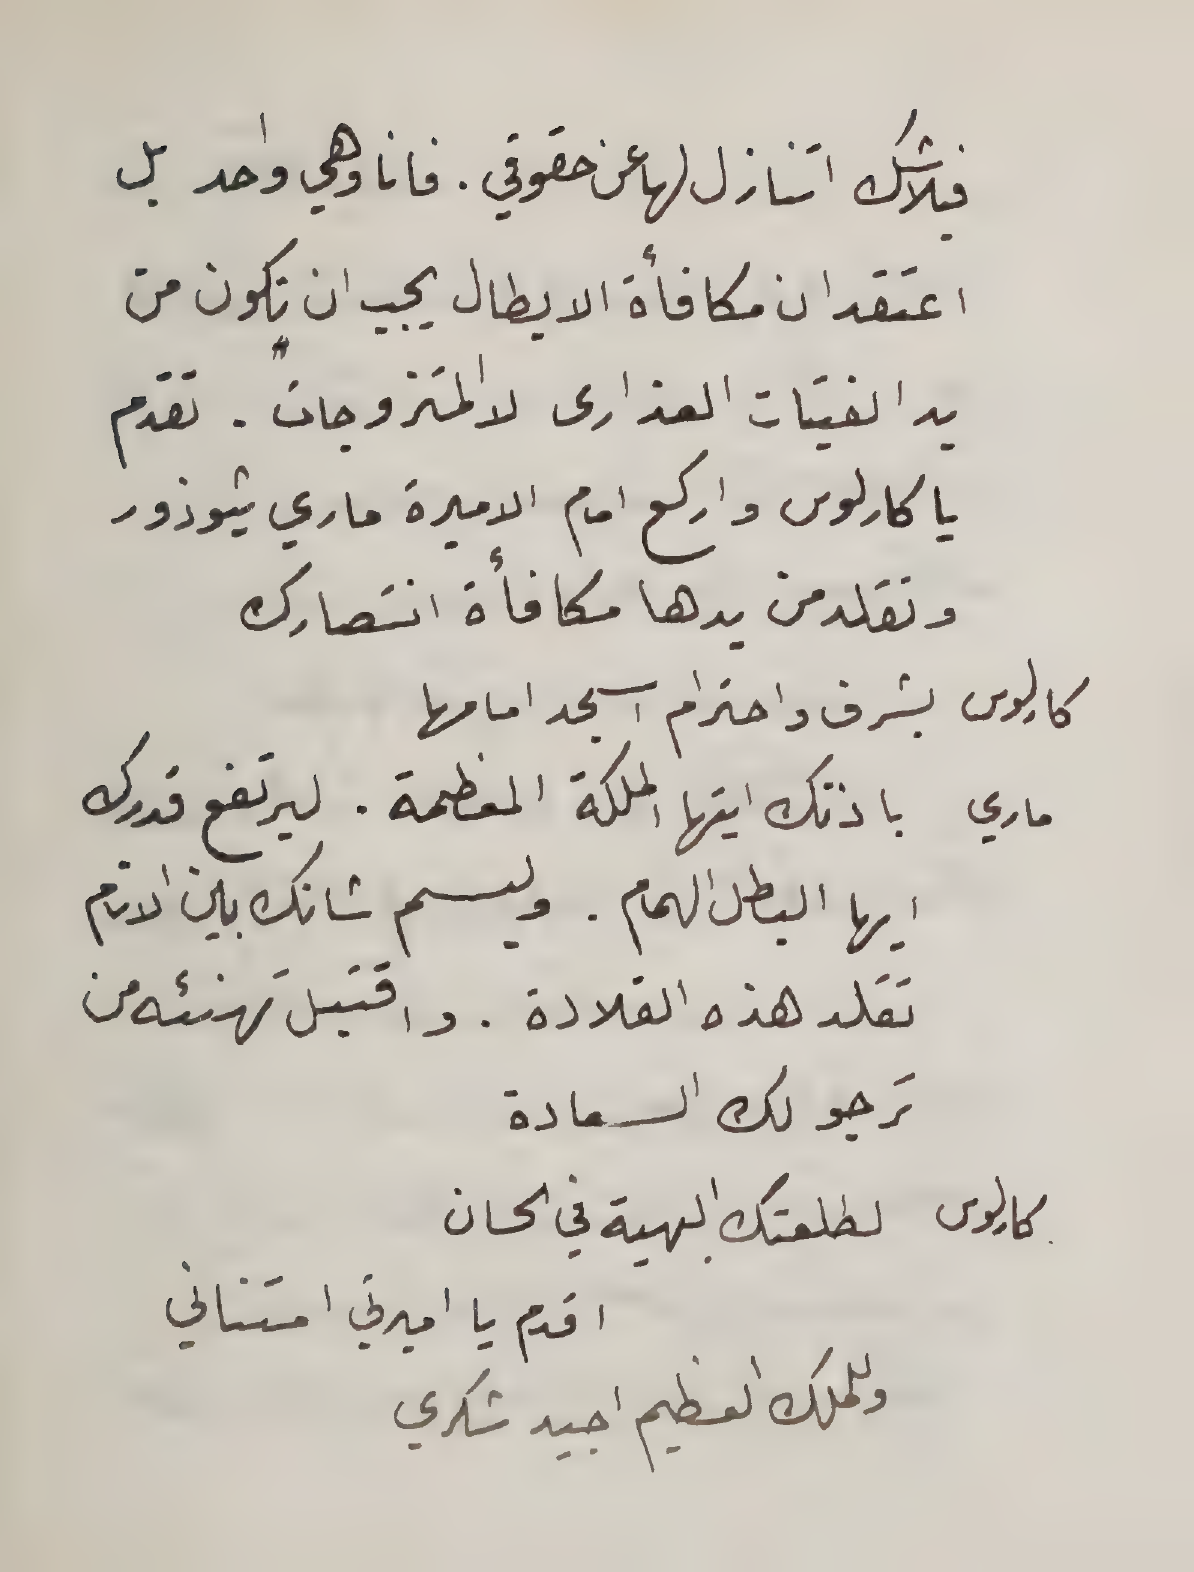 فبلاشك اتنازل لها عن حقوقي . فانا وهي واحد بل
اعتقد ان مكافأة الابطال يجب ان تكون من
يد الفتيات العذارى لا المتزوجات . تقدم
يا كارلوس واركع امام الاميرة ماري ثيوذور
وتقلد من يدها مكافأة انتصارك
كارلوس بشرف واحترام اسجد امامها
ماري باذنك ايتها الملكة المعظمة . ليرتفع قدرك
ايها البطل الهمام . وليسم شانك بين الانام
تقلد هذه القلادة . واقتبل تهنئه من
ترجو لك السعادة
كارلوس لطلعتك البهية في الحان
اقدم يا اميرتي امتناني
وللملك العظيم اجيد شكري